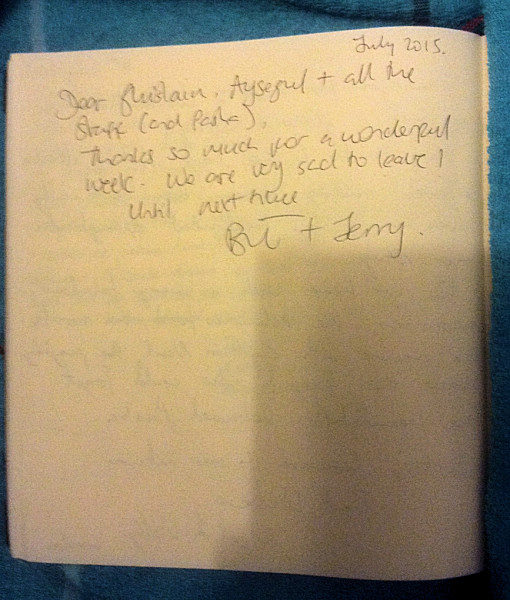 July 2015.
Dear Ghislain, Aysegul + all the
Staff (and Pasha),
Thanks so much for a wonderful
week. We are very sad to leave!
Until next time
+ Jenny.